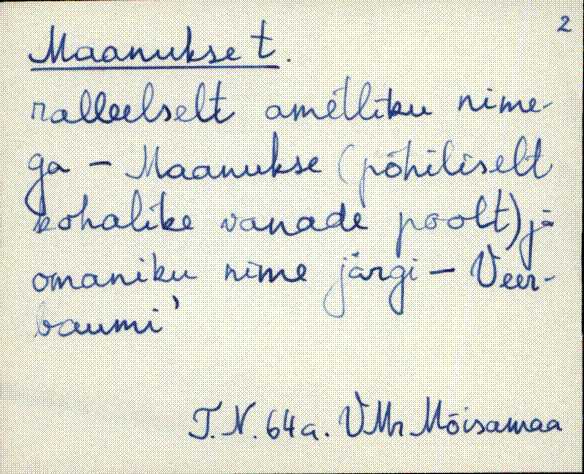 2
Maanukse t.
ralleelselt ametliku nime-
ga – Maanukse (põhiliselt
kohalike vanade poolt) ja
omaniku nime järgi – Veer-
baumi'
T.N. 64 a. VMr Mõisamaa